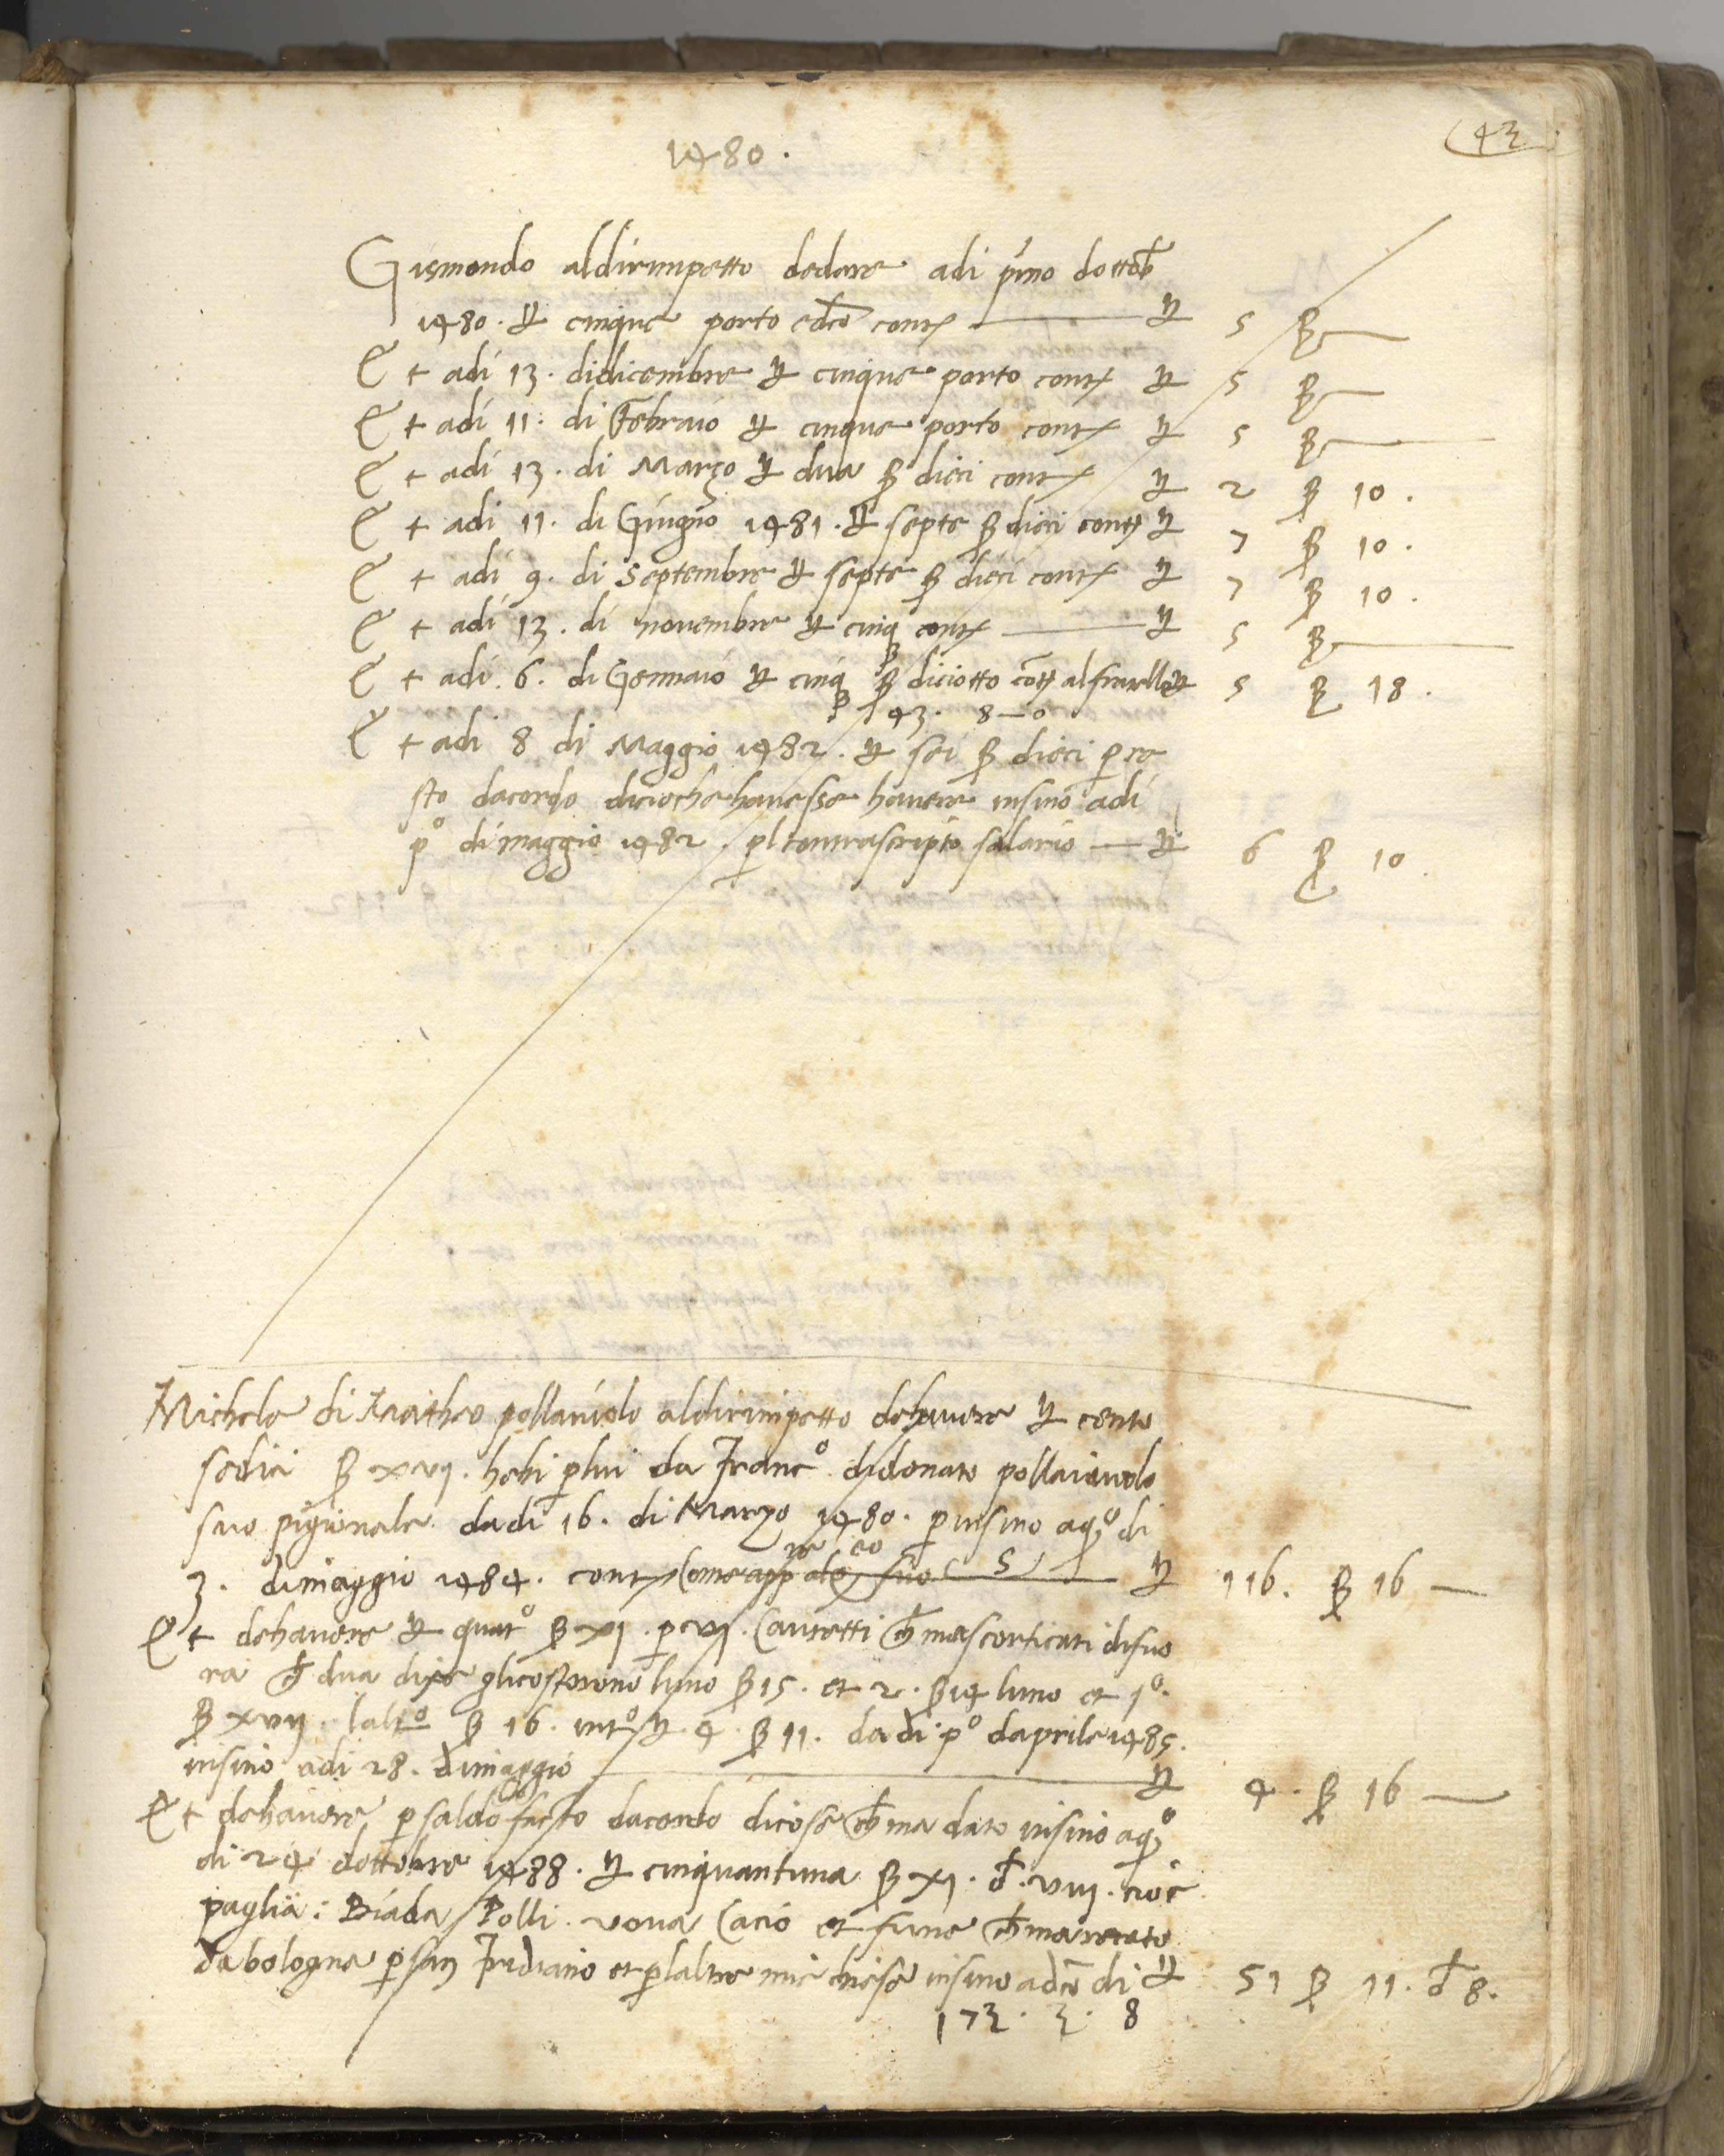 43
1480.
Gismondo aldirimpetto dedare adi p̄mo dottōb
1480. ₶ cinque porto edc̄o contj ₶ 5 β —
Et adi 13. didicembre ₶ cinque porto contj ₶ 5 β —
Et adi 11. di Febraio ₶ cinque porto contj ₶ 5 β —
Et adi 13. di Marzo ₶ dua β dieci contj ₶ 2 β 10.
Et adi 11. di Giugio 1481. ₶ septe β dieci contj ₶ 7 β 10.
Et adi 9. di Septembre ₶ septe β dieci contj ₶ 7 β 10.
Et adi 13. di novembre ₶ cinq contj ₶ 5 β —
Et adi 6. di Gennaio ₶ cinq β diciotto cōtj ₶ 5 β 18.
43. 8 — 0
Et adi 8 di Maggio 1482. ₶ sei β dieci p re
sto dacordo dicioche havesse havere insino adi
p° di maggio 1482. pl contrascripto salario — ₶ 6 β 10
Michele di Matheo pollaiuolo aldirimpetto dehavere ₶ cento
sedici β xvj. hebi p lui da Franc° didonato pollaiuolo
suo pigionale dadi 16. di Marzo 1480. p insino aq°di
3. dimaggio 1484. contj ₶ 116. β 16 —
Et dehavere ₶ quat° β xj. p vj. Cavretti ch̄ mascorticati disuo
ra ch̄ dua dixe glicosterono luno β 15. et 2. β 14 luno et 1°.
β xvij. lalt° β 16. int° ₶ 4. β 11. dadi p° daprile 1485.
insino adi 28. dimaggio ₶ 4. β 16 —
Et dehavere p saldo facto dacordo dicose ch̄ ma dato insino aq°
di 24 dottobre 1488. ₶ cinquantuna β xj. đ. viij. cioè
paglia: Biada Polli. vova Cacio et fune ch̄ ma recato
da bologna p san Fridiano et p laltre mie chiese insino adc̄o di ₶ 51 β 11. đ 8.
173. 3. 8